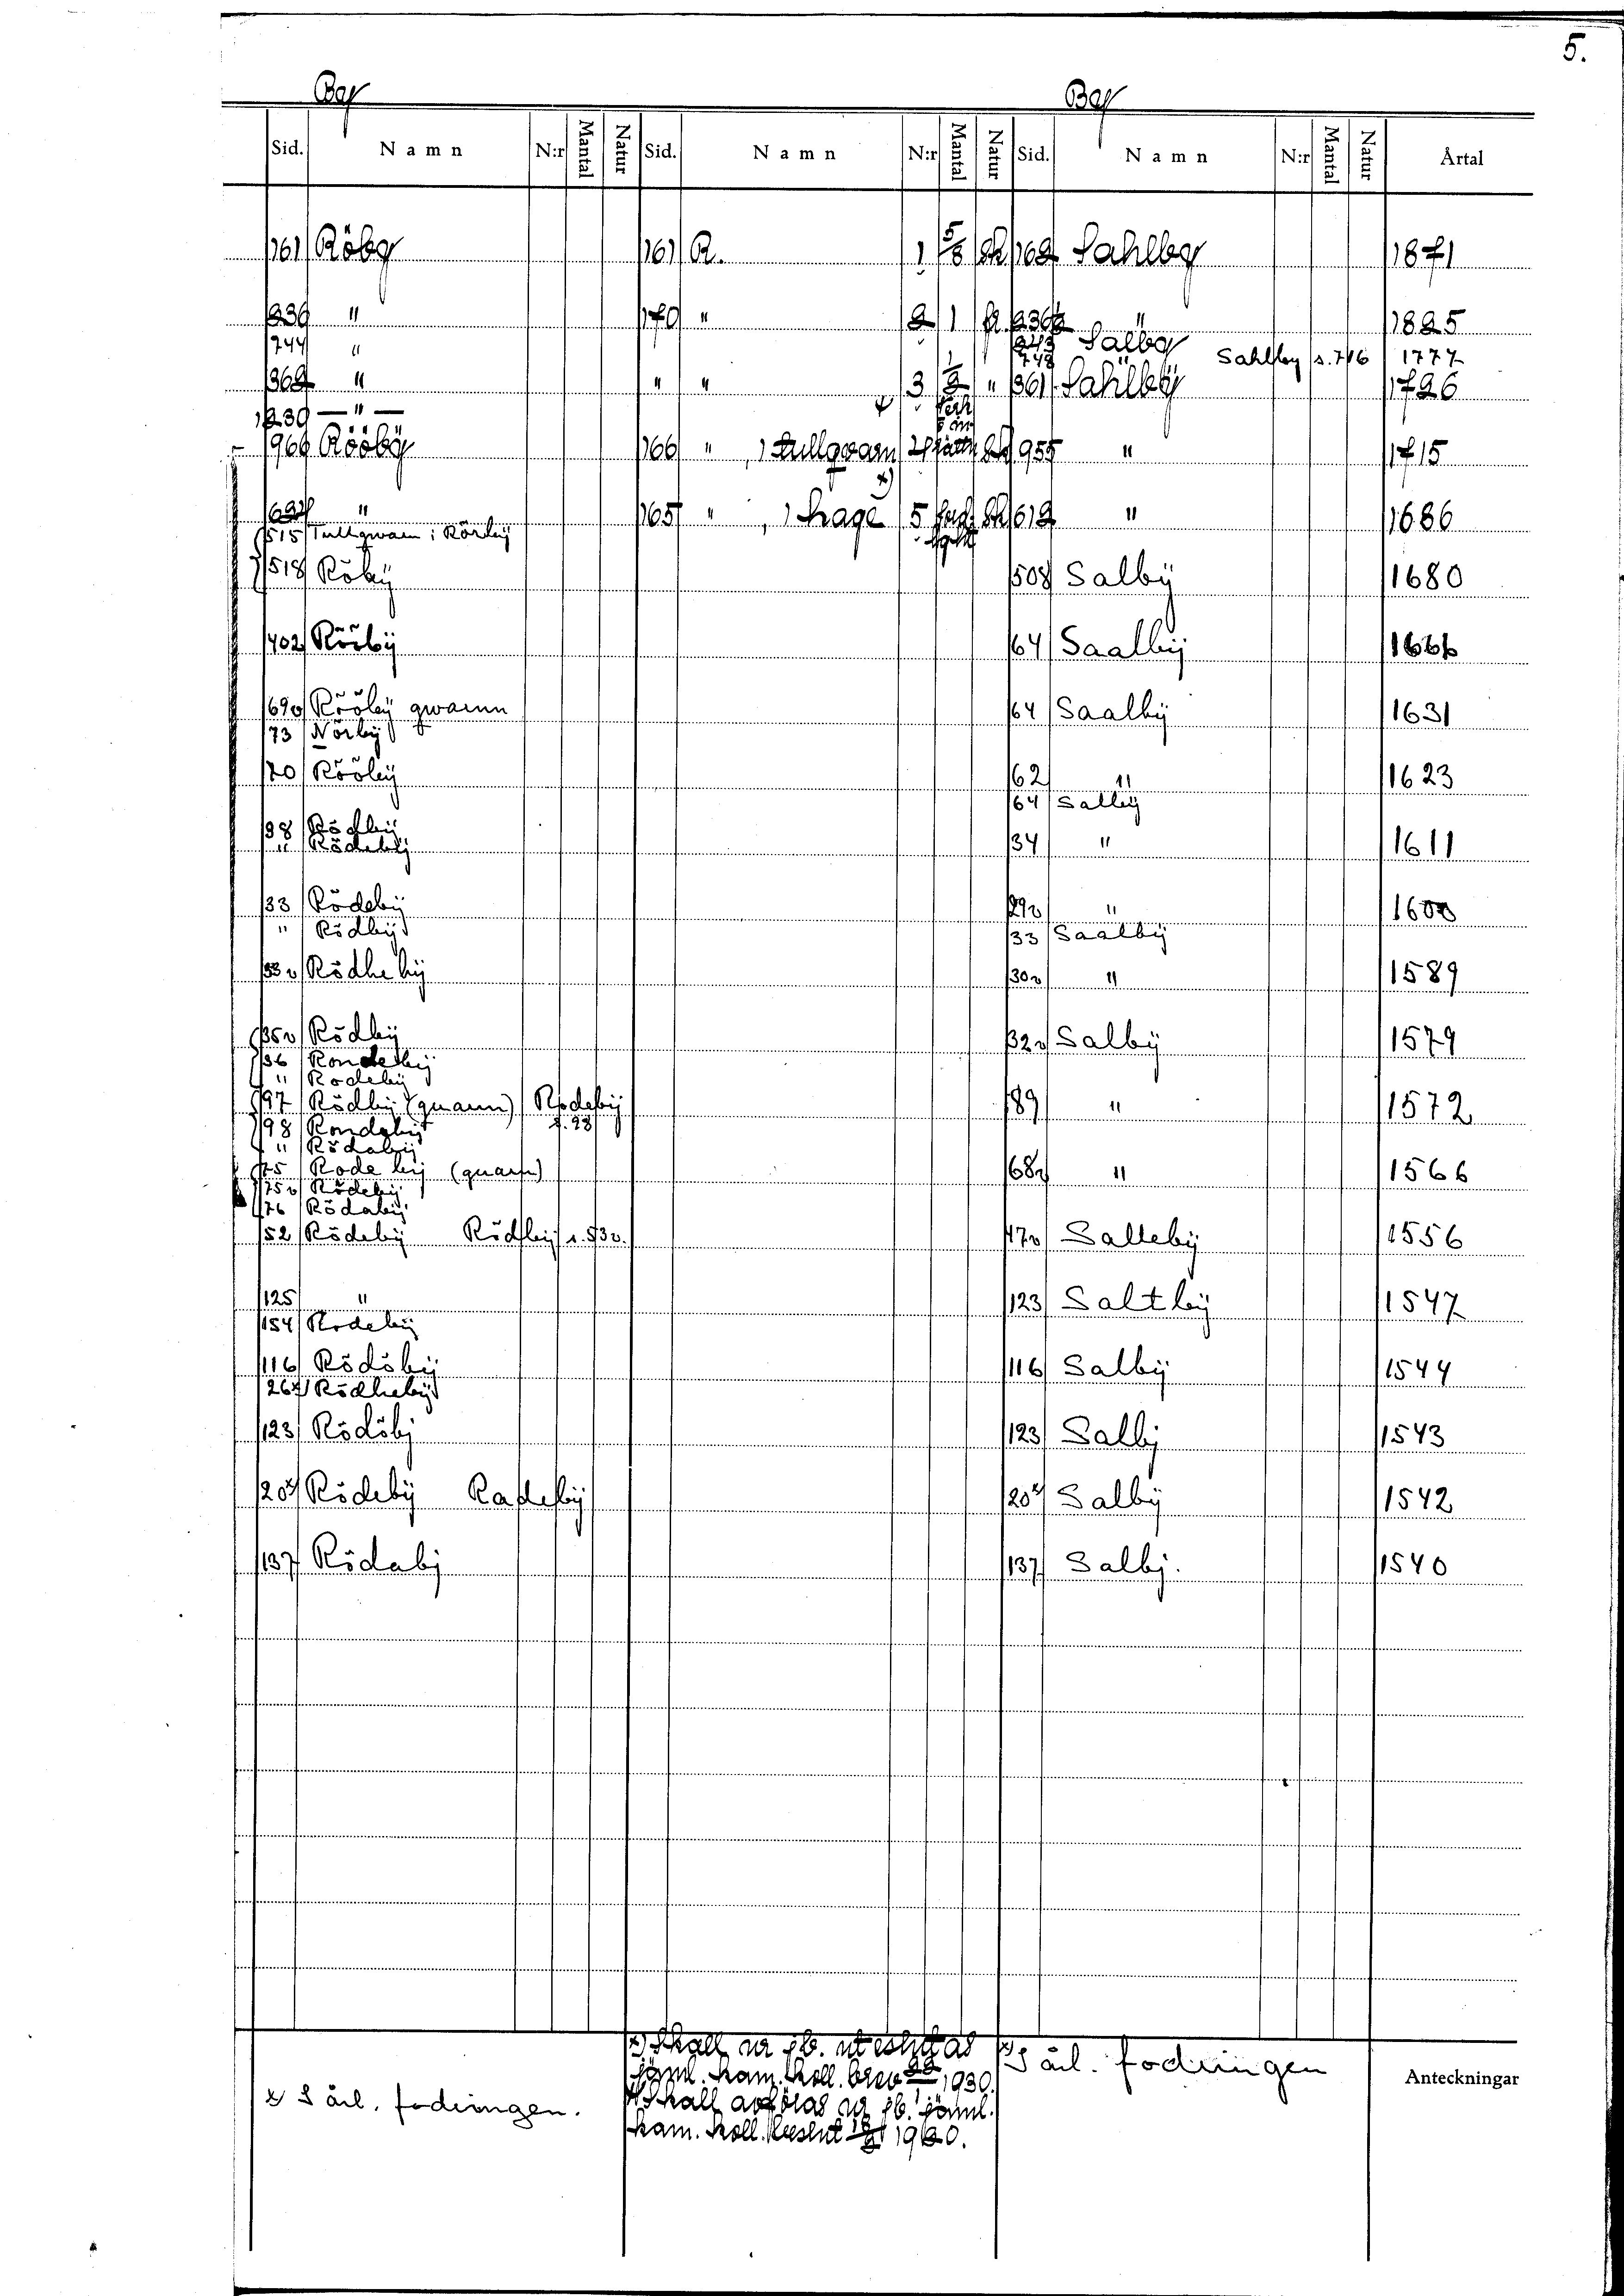 5.
By By
Sid. Namn N:r Mantal Natur Sid. Namn N:r Mantal Natur Sid. Namn N:r Mantal Natur Årtal
161 Röby 161 R. 1 5/8 Sk 162 Sahlby 1871
236 " 170 " 2 1 fr. 236 " 1825
744 " 243 Salby
748 " Sahlby s. 716 1777
362 " " " 3 1/2 " 361 Sahlbÿ 1726
1230 — " —
966 Rööbÿ 166 " , 1 tullqvarn 4 Sk 955 " 1715
692 " 165 " , 1 hage x) 5 Sk 612 " 1686
515 Tullqwarn i Rörbÿ
518 Röbÿ 508 Salbÿ 1680
402 Röörbÿ 64 Saalbÿ 1666
69v Rööbÿ qwarnn 64 Saalbÿ 1631
73 Nörbÿ
70 Rööbÿ 62 " 1623
64 Salbÿ
38 Rödbÿ
" Rödebÿ 34 " 1611
33 Rödebÿ 29v " 1600
" Rödbÿ 33 Saalbÿ
33v Rödhebÿ 30v " 1589
35v Rödbÿ 32v Salbÿ 1579
36 Rondebÿ
" Rodebÿ
97 Rödbÿ (quarnn) Rodebÿ s. 98 89 " 1572
98 Rondebÿ
" Rödabÿ
75 Rodebÿ (quarn) 68v " 1566
75v Rödebÿ
76 Rödabÿ
52 Rödebÿ Rödbÿ s. 53v. 47v Sallebÿ 1556
125 " 123 Saltbÿ 1547
154 Rodebÿ
116 Rödöbÿ 116 Salbÿ 1544
26x) Rödhebÿ
123 Rödöbj 123 Salbj 1543
20x) Rödebÿ Radebÿ 20x) Salbÿ 1542
137 Rödabj 137 Salbj. 1540
x) Skall ur jb. uteslutas
jäml. Kam. Koll. brev 1930.
Skall avföras ur jb. jäml.
Kam. Koll. beslut 1960.
x) S årl. fodringen.
x) S årl. fodringen
Anteckningar